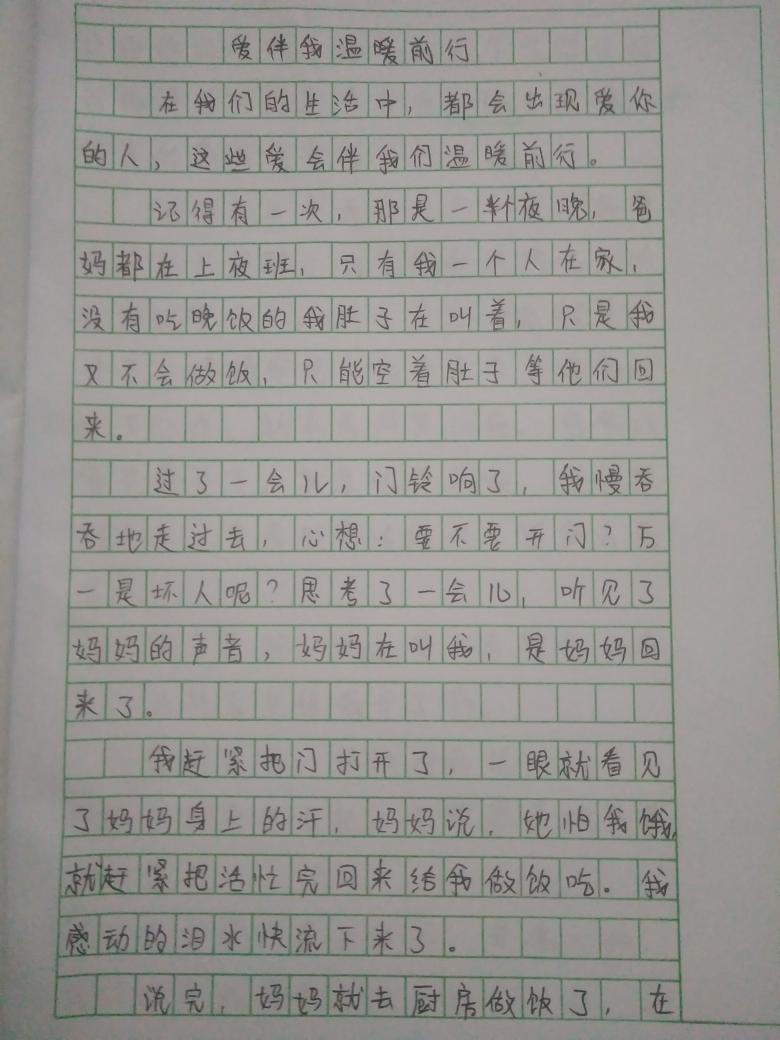 爱伴我温暖前行
在我们的生活中，都会出现爱你
的人，这些爱会伴我们温暖前行。
记得有一次，那是一个夜晚，爸
妈都在上夜班，只有我一个人在家，
没有吃晚饭的我肚子在叫着，只是我
又不会做饭，只能空着肚子等他们回
来。
过了一会儿，门铃响了，我慢吞
吞地走过去，心想：要不要开门？万
一是坏人呢？思考了一会儿，听见了
妈妈的声音，妈妈在叫我，是妈妈回
来了。
我赶紧把门打开了，一眼就看见
了妈妈身上的汗，妈妈说，她怕我饿，
就赶紧把活忙完回来给我做饭吃。我
感动的泪水快流下来了。
说完，妈妈就去厨房做饭了，在